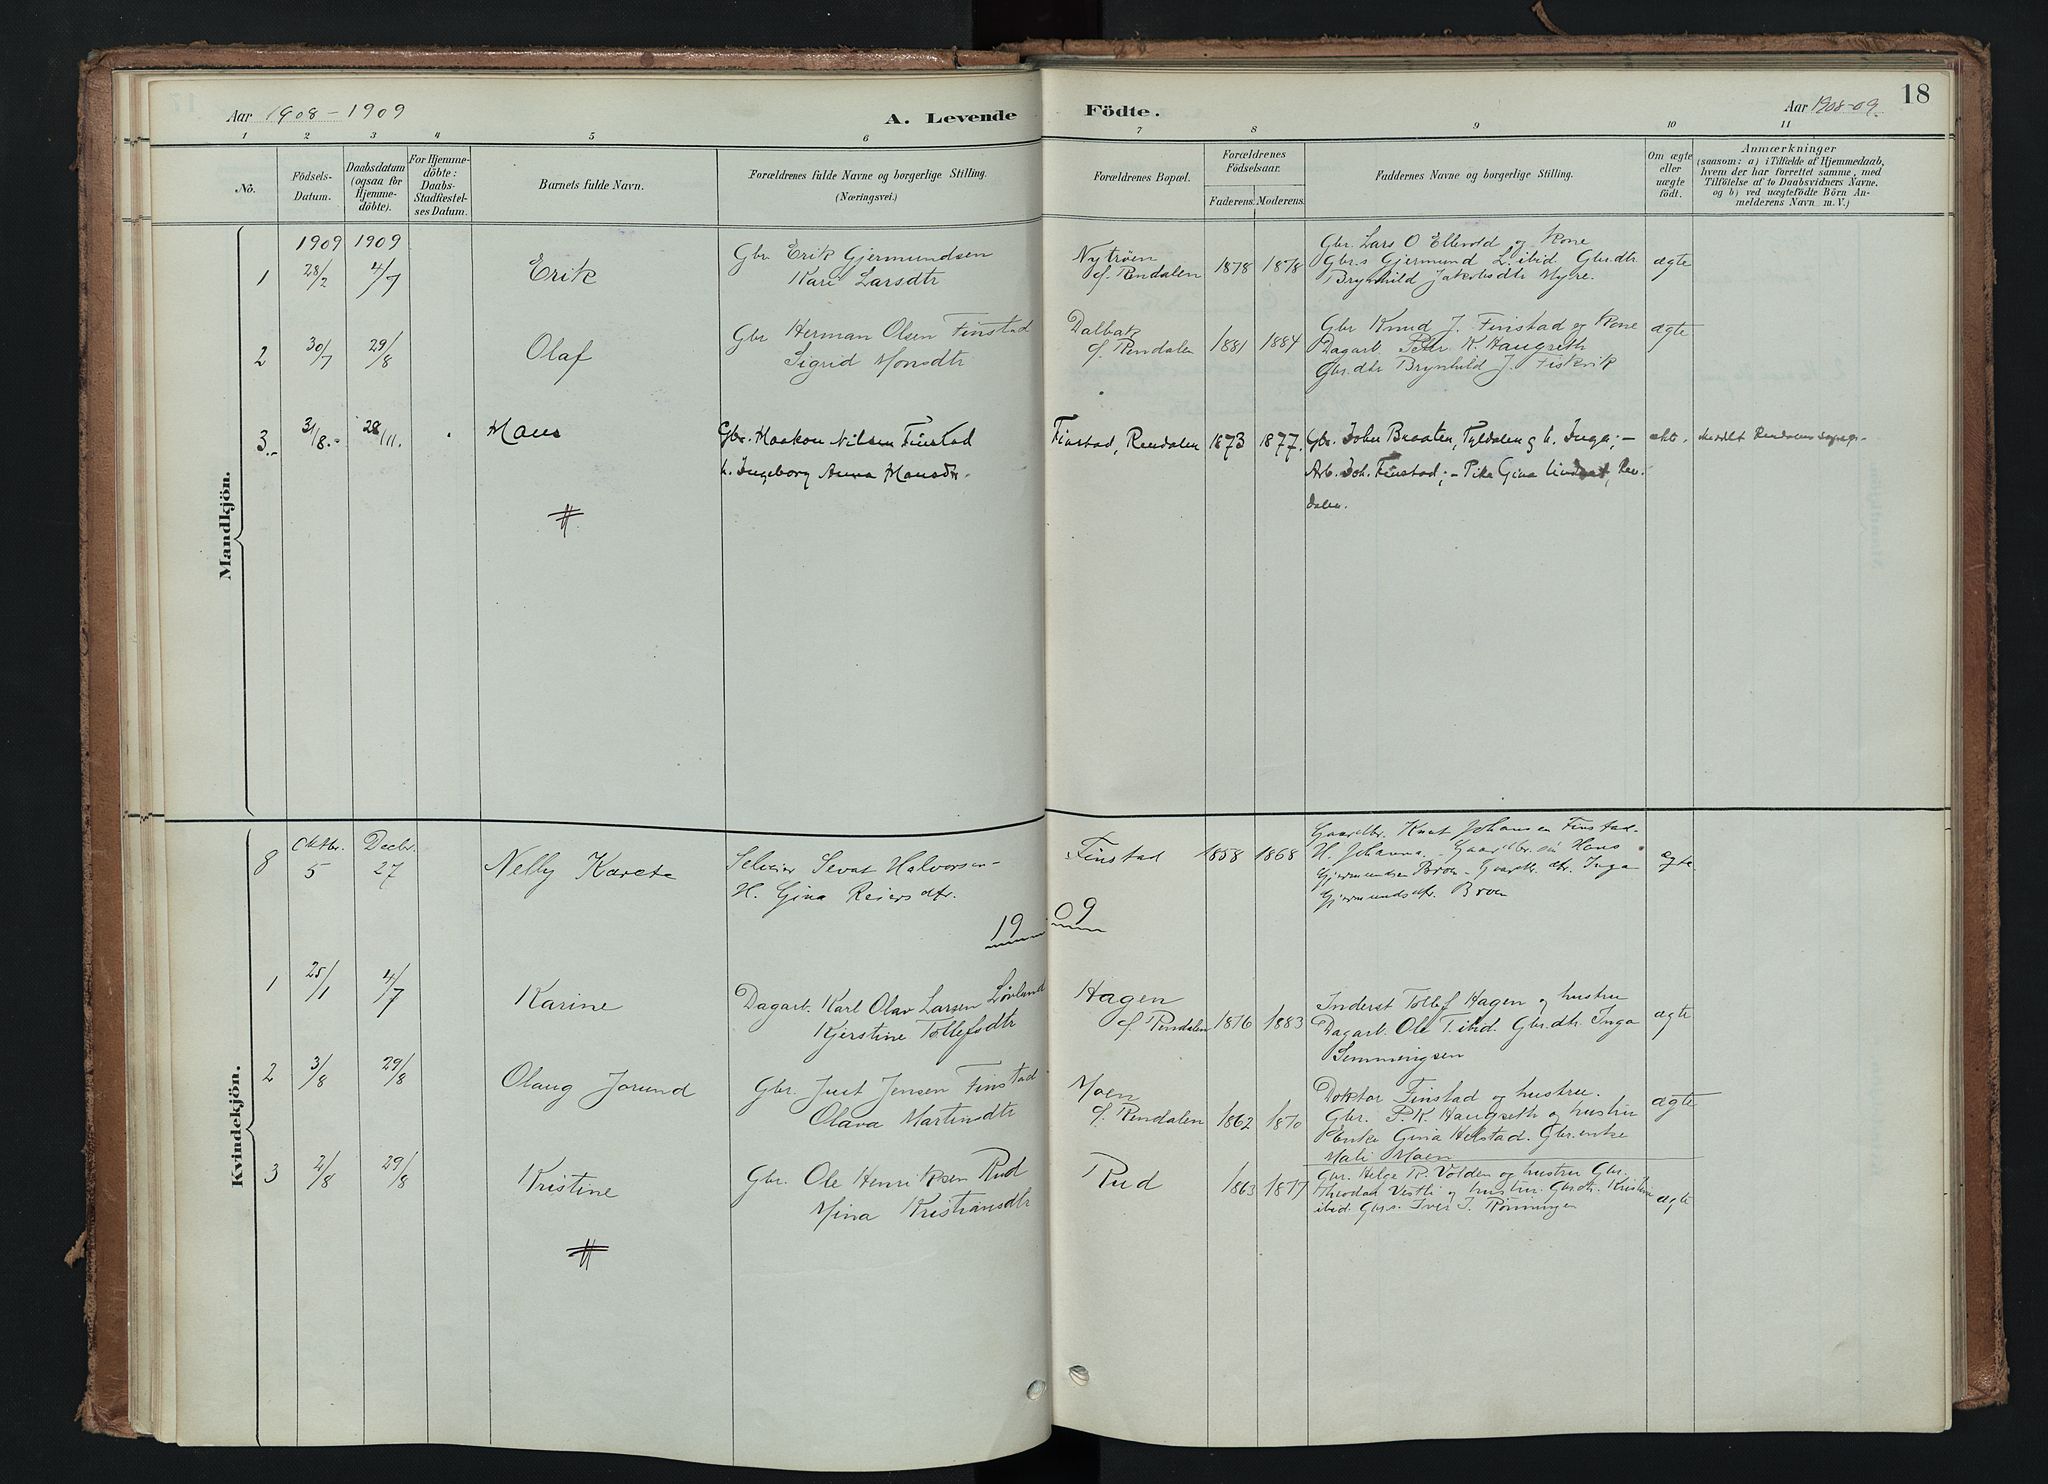 Aar 1908-1909
A. Levende Födte.
Aar 1908-09.
18
1 2 3 4 5 6 7 8 9 10 11
No.
Födsels-
Datum.
Daabsdatum
(ogsaa for
Hjemme-
döbte).
For Hjemme-
döbte:
Daabs-
Stadfæstel-
ses Datum.
Barnets fulde Navn.
Forældrenes fulde Navne og borgerlige Stilling.
(Næringsvei.)
Forældrenes Bopæl.
Forældrenes
Födselsaar.
Faderens. Moderens.
Faddernes Navne og borgerlige Stilling.
Om ægte
eller
uægte
födt.
Anmærkninger
(saasom: a) i Tilfælde af Hjemmedaab,
hvem der har forrettet samme, med
Tilföielse af to Daabsvidners Navne,
og b) ved uægtefödte Börn An-
melderens Navn m. V.)
Mandkjön.
1909 1909
1 28/2 4/7 Erik
Gbr Erik Gjermundsen
Kari Larsdtr
Nytrøen
s/ Rendalen 1878 1878
Gbr. Lars O Ellevold og Kone
Gbr.s Gjermund L. ibid Gbr.dtr
Brynhild Jakobsdtr Myre.
ægte
2 30/7 29/8 Olaf
Gbr Herman Olsen Finstad
Sigrid Monsdtr
Dalbak
s/ Rendalen 1881 1884
Gbr Knud J. Finstad og Kone
Dagarb. Peter K. Haugseth
Gbr.dtr Brynhild J. Fiskvik
ægte
3.- 31/8.- 28/11. Hans
Gbr. Haakon Nilsen Finstad
h. Ingeborg Anna Hansdr.
Finstad, Rendalen 1873 1877.
Gbr. John Braaten, Tyldalen og h. Inga; -
Arb. Joh. Finstad; - Pike Gina Lindset, Ren-
dalen.
ekte.
Kvindekjön.
Oktbr. Decbr.
8 5 27 Nelly Karete
Selveier Sevat Halvorsen
H. Gina Reiersdtr.
Finstad 1858 1868
Gaardbr. Knut Johansen Finstad-
H. Johanna. - Hans
Gjermundsen Broen - Inga
Gjermundsdtr. Broen
ægte
1909
1 25/1 4/7 Karine
Dagarb. Karl Olav Larsen Løvlund
Kjerstine Tollefsdtr
Hagen
s/ Rendalen 1876 1883
Inderst Tollef Hagen og hustru
Dagarb. Ole T. ibid. Gbr.dtr. Inga
Semmingsen
ægte
2 3/8 29/8 Olaug Jorund
Gbr. Just Jensen Finstad
Olava Martinsdtr
Moen
s/ Rendalen 1862 1870
Doktor Finstad og hustru.
Gbr. P. K. Haugseth og hustru
Enke Gina Helstad. Gbr.enke
Mali Moen
ægte
3 2/8 29/8 Kristine
Gbr. Ole Henriksen Rud
Mina Kristiansdtr
Rud 1863 1877
Gbr. Helge R. Volden og hustru Gbr.
Theodor Vestli og hustru. Gbrdtr. Kristine
ibid. Gbrs. Iver J. Rønningen
ægte